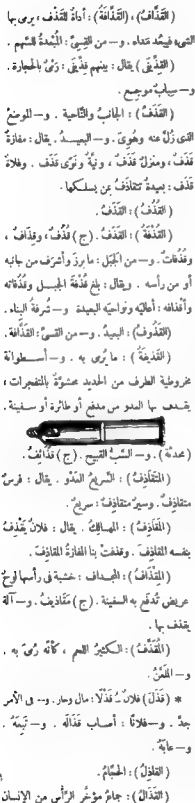 ( القَذَّافُ ) ، ( القَذَّافَةُ ) : أداةٌ للقَذْف ، يرمى بها
الشيء فيبعُد مَداه . و — من القِسِيّ : المُبعِدةُ السَّهم .
( القِذِّيفَى ) يقال : بينهم قِذِّيفَى : رَمْىٌ بالحجارة .
و — سِبابٌ موجع .
( القَذَفُ ) : الجانِبُ والنَّاحية . و — الموضعُ
الذى زُلَّ عنه وهُوِىَ . و — البعيــد . يقال : مفازةٌ
قَذَفٌ ، ومنزلٌ قَذَف ، ونِيَّةٌ ونَوًى قَذَف . وفلاةٌ
قَذَف : بعيدةٌ تَتقاذَفُ بمن يسلكها .
( القُذُفُ ) : القَذَفُ .
( القُذْفَةُ ) : القَذَفُ . ( ج ) قُذُفٌ ، وقِذَافٌ ،
وقُذُفاتٌ . و — من الجَبَل : ما برزَ وأشرَف من جانبه
أو من رأسه . ويقال : بلغَ قُذْفَةَ الجبــل وقُذُفاته
وأقذافه : أعاليَه ونواحيَه البعيدة . و — شُرفةُ البناء .
( القَذُوفُ ) : البعيدُ . و — من القسىّ : القَذَّافَة .
( القَذِيفَةُ ) : ما يُرمَى به . و — أسـطوانةٌ
مخروطية الطرف من الحديد محشوَّة بالمتفجرات ،
يقـذف بها العدو من مدفع أو طائرة أو سفينة .
( محدثة ) . و — السَّبُّ القبيح . ( ج ) قذائفُ .
( المتقاذِفُ ) : السَّريعُ العَدْو . يقال : فرسٌ
متقاذِفٌ . وسيرٌ متقاذِفٌ : سريعٌ .
( المَقاذِفُ ) : المهالكُ . يقال : فلانٌ يَقْذِفُ
بنفسه المقاذِفَ . وقذفَتْ بنا المفازةُ المقاذِفَ .
( المِقْذَافُ ) : المِجداف : خشبة فى رأسها لَوحٌ
عريض تُدفَع به السفينة . ( ج ) مَقاذيفُ . و — آلة
يقذف بها .
( المُقَذَّفُ ) : الكثيرُ اللحم ، كأنّه رُمِىَ به .
و — المُلَعَّنُ .
* ( قَذَلَ ) فلانٌ ُ قَذْلًا : مال وجار . و — فى الأمر
جدَّ . و — فلانًا : أصاب قَذَالَه . و — تَبِعَهُ .
و — عابَهُ .
( القاذِلُ ) : الحجَّامُ .
( القَذَالُ ) : جِماعُ مؤخَّر الرَّأس من الإنسان